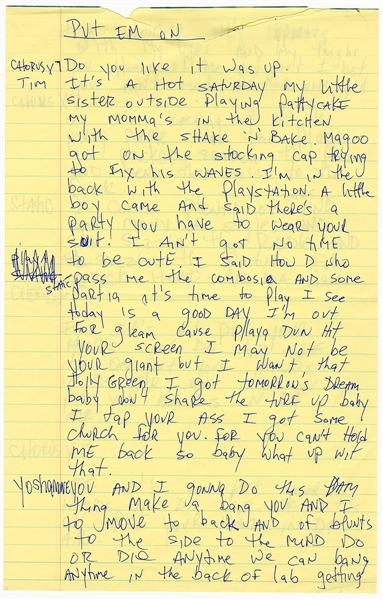 PUT EM ON
CHORUS X1 Do you like it was up.
TIM It's A Hot SATURDAY My little
sister outside Playing PATTYCAKE
My MOMMA'S in the KitCHEN
WITH the SHAKE 'N' BAKE. MAGOO
got on the stocking cap trying
to Fix his WAVES. I'M in the
back with the PlAYSTATION. A little
boy CAME And said there's a
party you HAVE to WEAR your
SUIT. I Ain't got NO tiME
to be CUTE I SAID HOW D who
STATIC pass me the combosia And some
partia it's time to Play I see
today is a good DAY I'M out
FOR gleam cause playa DUN Hit
your screen I MAY Not be
your giant but I WANT that
Jolly GREEN I got TOMORROW'S DREAM
baby don't share the turf up baby
I tap your ASS I got some
church for you. FOR you can't Hold
ME back so baby what up wit
that.
yoshamine YOU AND I gonna Do this
thing Make ya bang you AND I
to MOVE to back AND of blunts
to the side to the MIND DO
OR DIE ANYtime We can bang
ANYtime in the back of lab getting